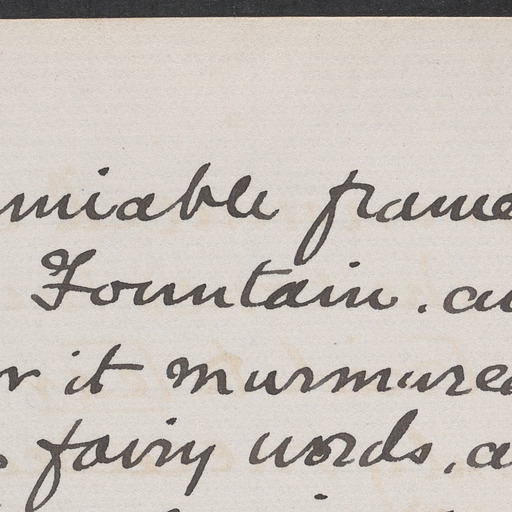 amiable frame
Fountain. an
or it murmured
fairy words, a